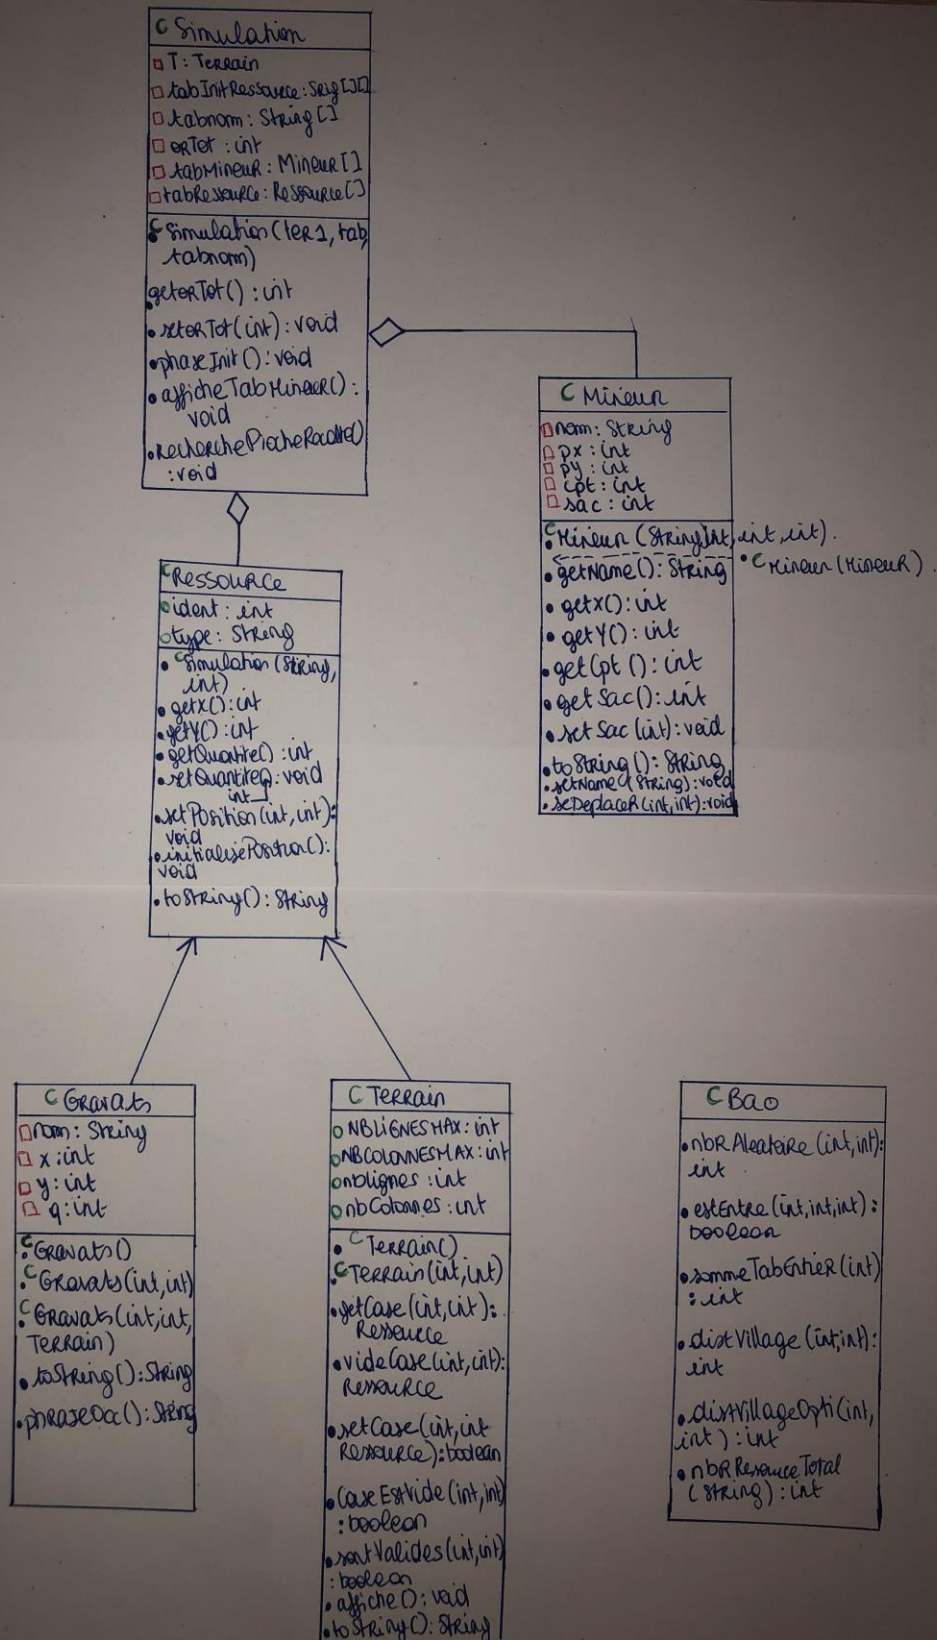 C Simulation
T: Terrain
tabInitRessource: Srig[][]
tabnom: String[]
orTot: int
tabMineur: Mineur[]
tabRessource: Ressource[]
C Simulation(ter1, tab,
tabnom)
getorTot(): int
setorTot(int): void
phaseInit(): void
afficheTabMineur():
void
recherchePiocheRecolte()
: void
C Mineur
nom: String
px: int
py: int
cpt: int
sac: int
C Mineur(String, int, int, int).
C Mineur(Mineur)
getName(): String
getX(): int
getY(): int
getCpt(): int
getSac(): int
setSac(int): void
toString(): String
setName(String): void
seDeplacer(int,int): void
C Ressource
ident: int
type: String
C Simulation(String,
int)
getX(): int
getY(): int
getQuantite(): int
setQuantite(): void
int
setPosition(int, int):
void
initialisePosition():
void
toString(): String
C Gravats
nom: String
x: int
y: int
q: int
C Gravats()
C Gravats(int,int)
C Gravats(int,int,
Terrain)
toString(): String
phraseDoc(): String
C Terrain
NBLIGNESMAX: int
NBCOLONNESMAX: int
nblignes: int
nbColonnes: int
C Terrain()
C Terrain(int,int)
getCase(int,int):
Ressource
videCase(int,int):
Ressource
setCase(int,int
Ressource): boolean
CaseEstVide(int,int)
: boolean
sontValides(int,int)
: boolean
affiche(): void
toString(): String
C Bao
nbRAleatoire(int,int):
int
estEntre(int,int,int):
boolean
sommeTabEntier(int)
: int
distVillage(int,int):
int
distVillageOpti(int,
int): int
nbRResourceTotal
(String): int